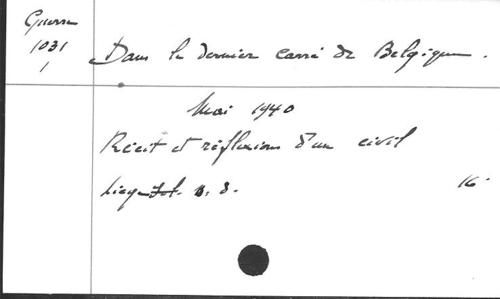 Guerre
1031
1
Dans le dernier carré de Belgique.
Mai 1940
Récit et réflexions d'un civil
Liége s. d.
16°